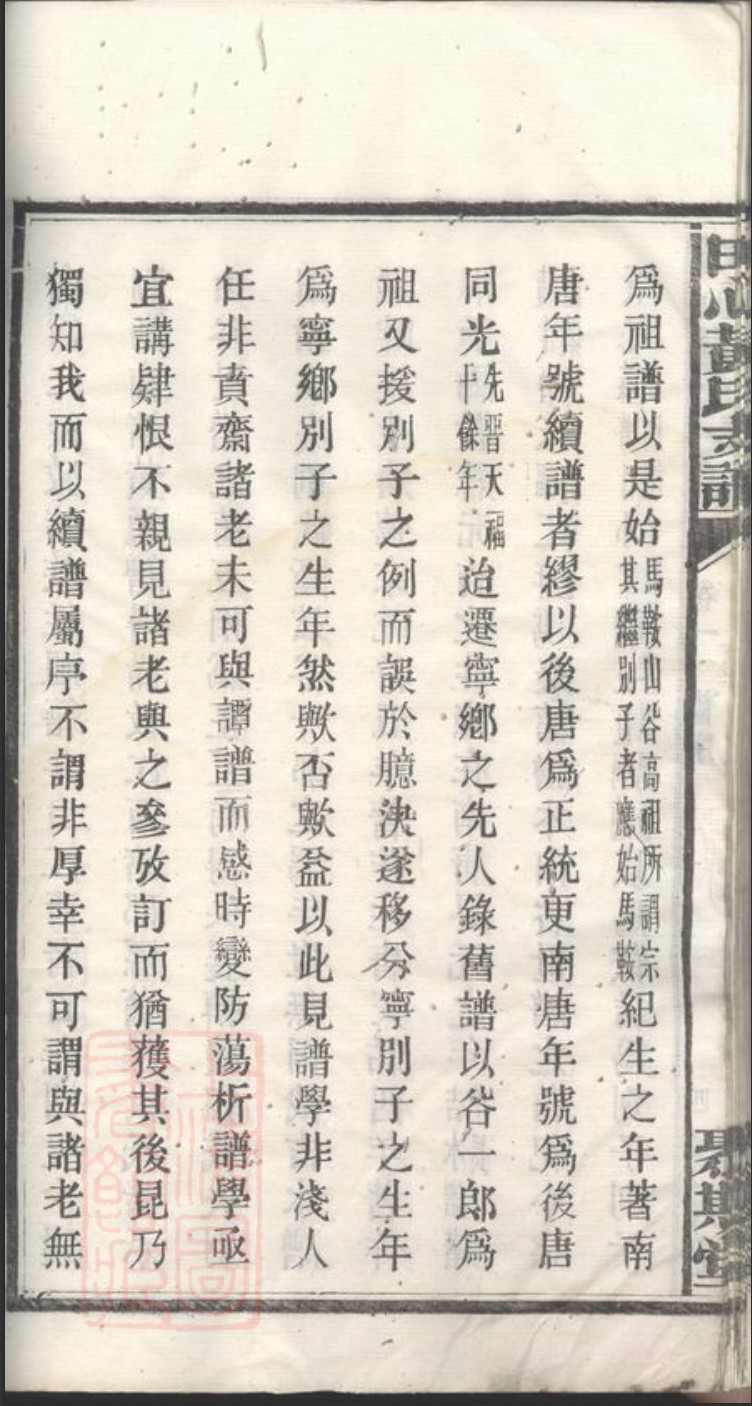 為祖譜以是始馬鞍山谷高祖所謂宗其繼別子者應始馬鞍紀生之年著南
唐年號續譜者繆以後唐為正統更南唐年號為後唐
同光先晉天福十餘年迨遷寧鄉之先人錄舊譜以谷一郎為
祖又援別子之例而誤於臆決遂移分寧別子之生年
為寧鄉別子之生年然歟否歟益以此見譜學非淺人
任非賁齋諸老未可與譚譜而感時變防蕩析譜學亟
宜講肄恨不親見諸老與之參攷訂而猶獲其後昆乃
獨知我而以續譜屬序不謂非厚幸不可謂與諸老無
黃氏支譜